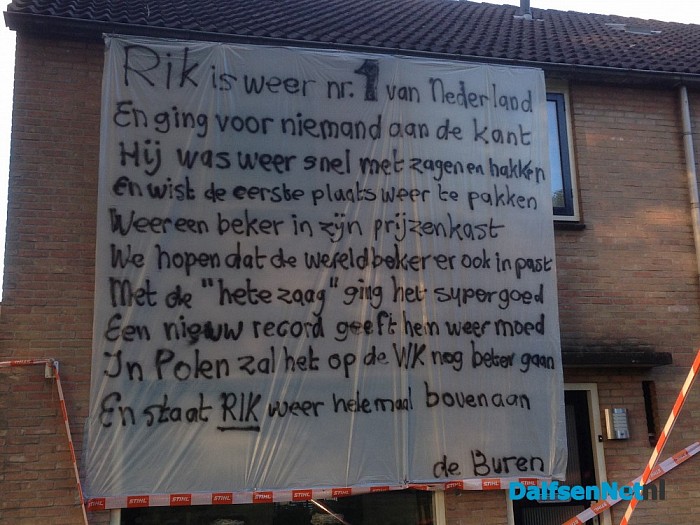 Rik is weer nr. 1 van Nederland
En ging voor niemand aan de kant
Hij was weer snel met zagen en hakken
En wist de eerste plaats weer te pakken
Weer een beker in zijn prijzenkast
We hopen dat de wereldbeker er ook in past
Met de "hete zaag" ging het supergoed
Een nieuw record geeft hem weer moed
In Polen zal het op de WK nog beter gaan
En staat RIK weer helemaal bovenaan
de Buren
STIHL STIHL STIHL STIHL STIHL STIHL STIHL
DalfsenNet.nl